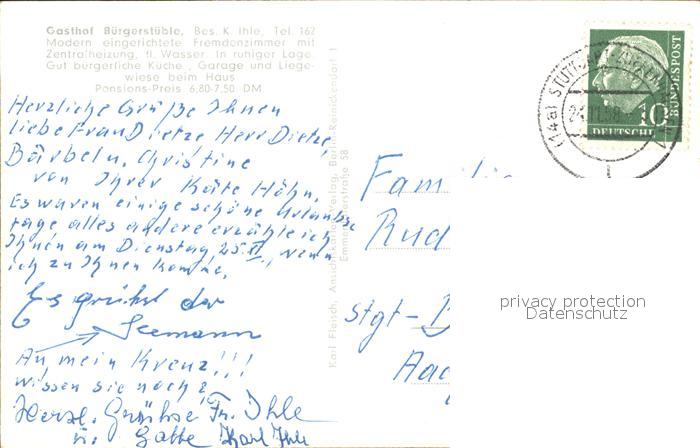 Gasthof Bürgerstüble, Bes. K. Ihle, Tel. 162
Modern eingerichtete Fremdenzimmer mit
Zentralheizung, fl. Wasser. In ruhiger Lage.
Gut bürgerliche Küche, Garage und Liege-
wiese beim Haus
Pensions-Preis 6,80-7,50 DM
Herzliche Grüße Ihnen
liebe Frau Dietze Herr Dietze,
Bärbeln, Christine
von Ihrer Käte Höhn,
Es waren einige schöne Urlaubs
tage alles andere erzähle ich
Ihnen am Dienstag 25. XI, wenn
ich zu Ihnen komme.
Es grüßt der
Seemann
An mein Kreuz!!!
wissen sie noch?
Herzl. Grüße Fr. Ihle
u. Gatte Karl Ihle
Karl Fleisch, Ansichtskarten-Verlag, Berlin-Reinickendorf 1
Emmentalerstraße 58
(14a) STUTTGART
24.11.58
10
DEUTSCHE
BUNDESPOST
Fam
Rud
Stgt-
privacy protection
Datenschutz